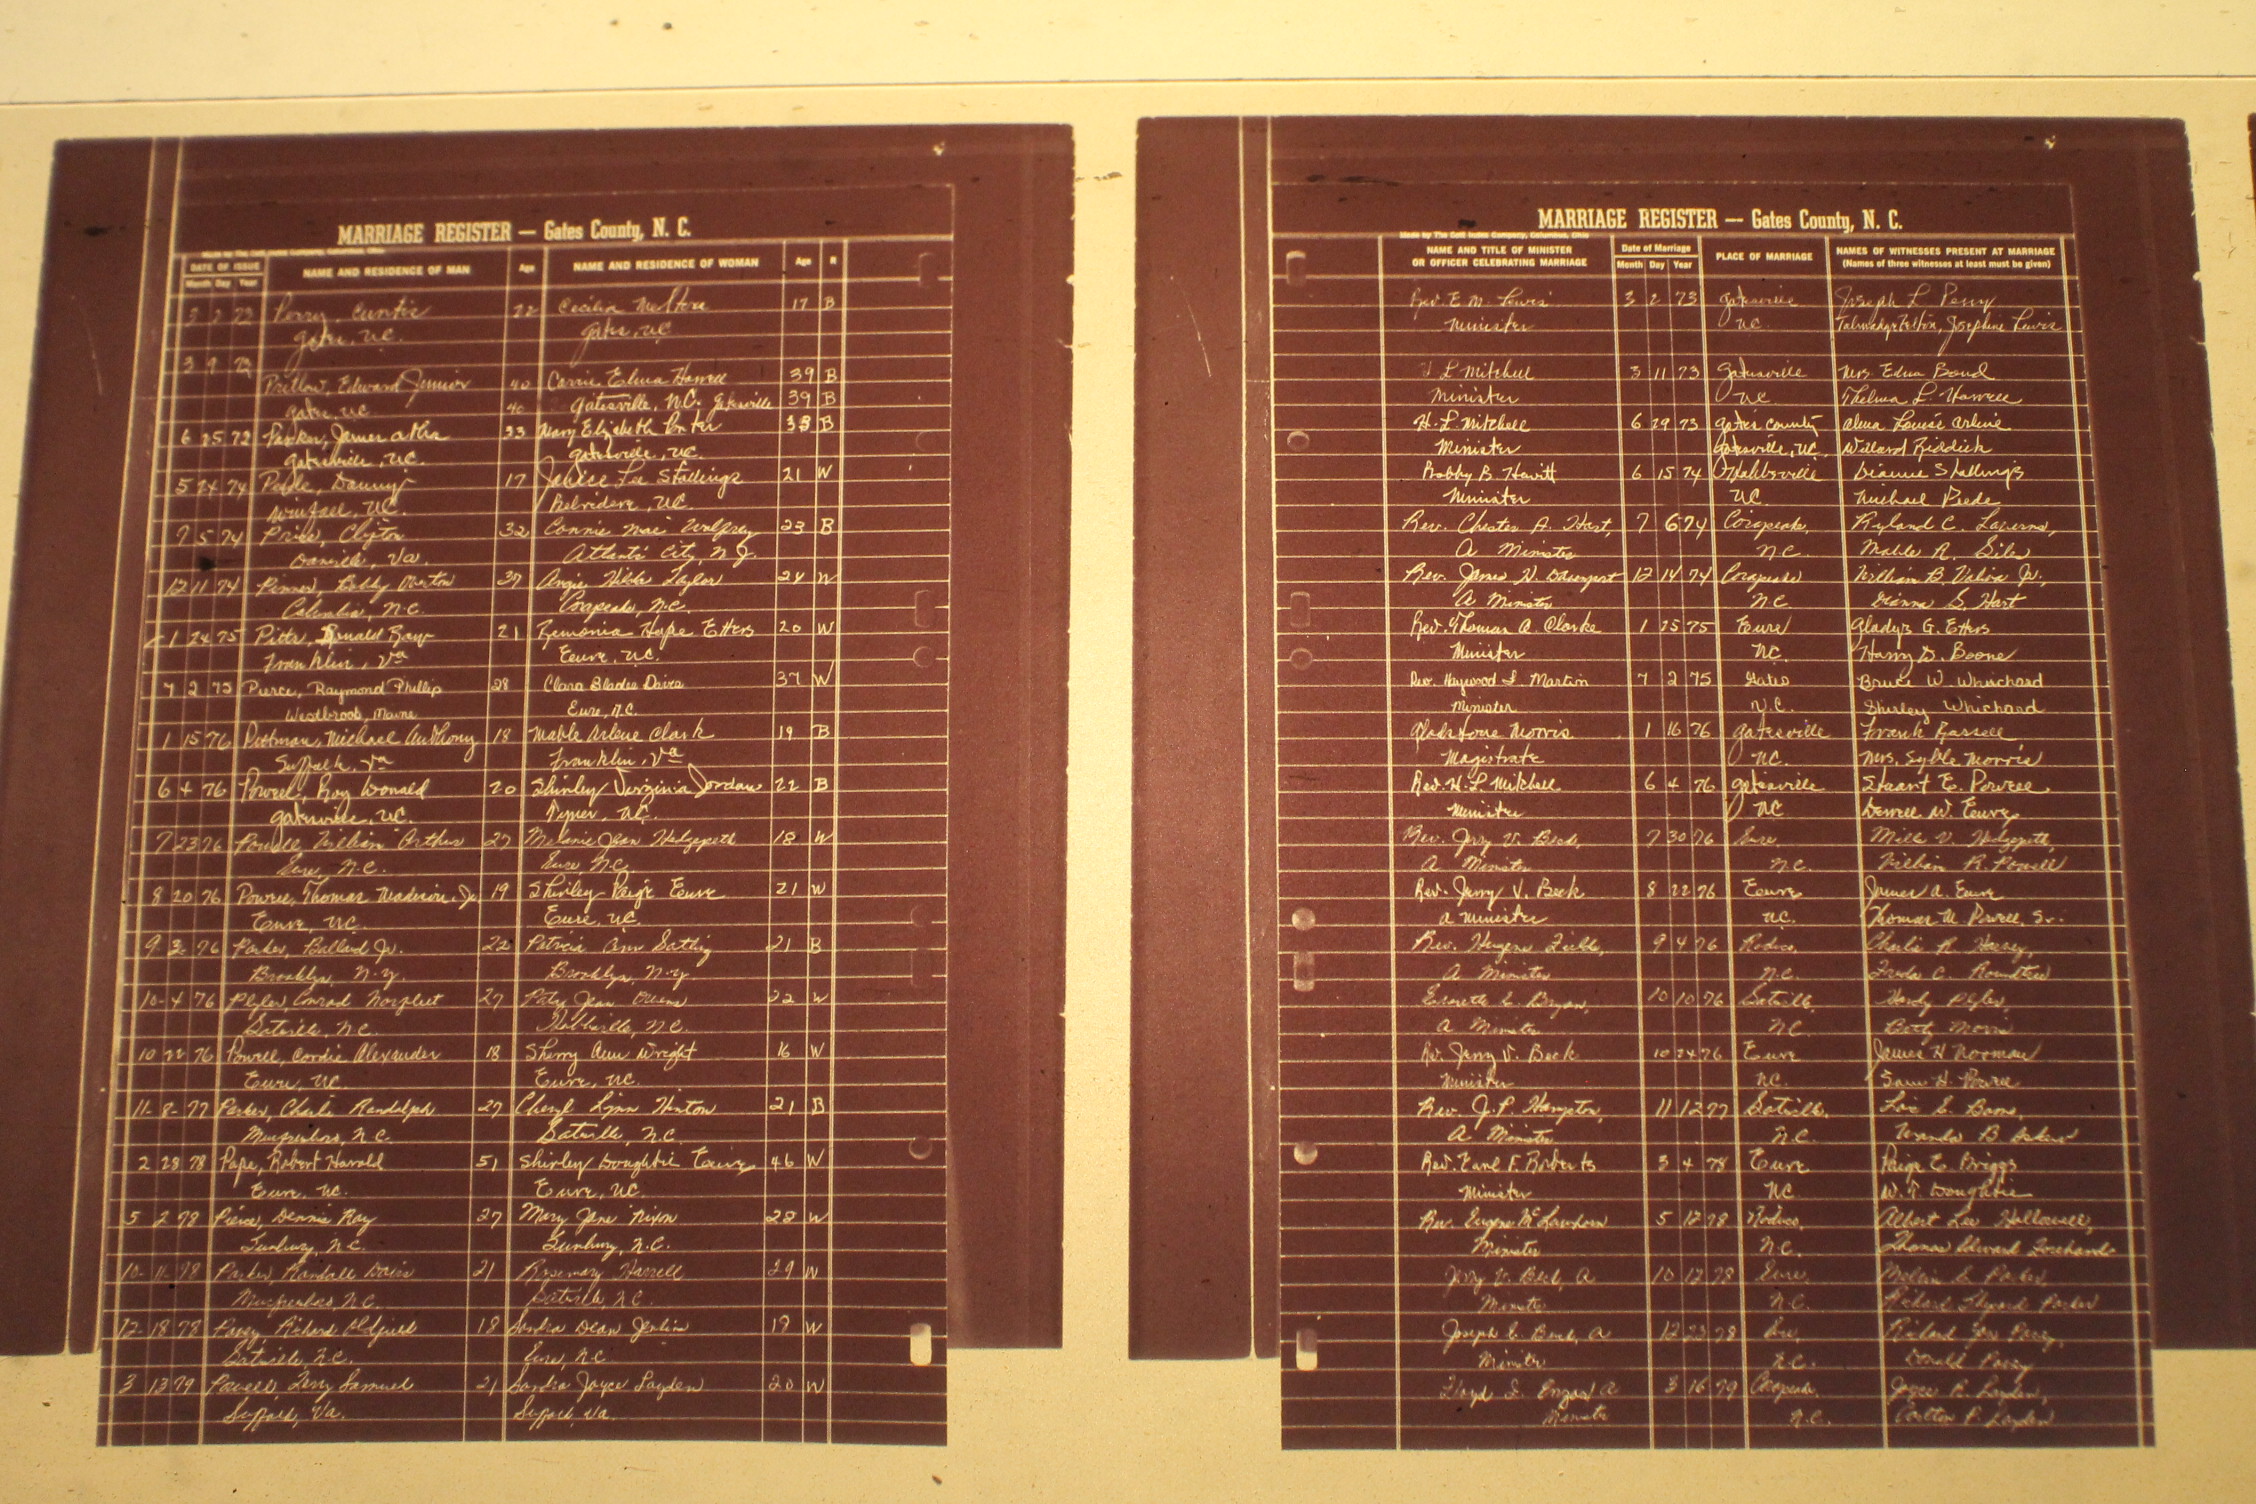 MARRIAGE REGISTER — Gates County, N. C.
DATE OF ISSUE
Month Day Year
NAME AND RESIDENCE OF MAN
Age
NAME AND RESIDENCE OF WOMAN
Age
R
3 2 73 Perry, Curtis 22 Cecilia 17 B
Gates, N.C. Gates, N.C.
3 9 73
Edward Junior 40 Carrie Elma Harrell 39 B
Gates, N.C. 40 Gatesville, N.C. Gatesville 39 B
6 25 73 Parker, James 33 Mary Elizabeth Porter 33 B
Gatesville, N.C. Gatesville, N.C.
5 24 74 Danny 17 Janice Lee Stallings 21 W
Winfall, N.C. Belvidere, N.C.
7 5 74 Clifton 32 Connie Mae 23 B
Danville, Va. Atlantic City, N.J.
12 11 74 Pinner, Bobby 37 Angie Hilda Taylor 24 W
Columbia, N.C. Corapeake, N.C.
1 24 75 Pitts, Ronald Ray 21 Remonia Hope Etters 20 W
Franklin, Va Eure, N.C.
7 2 75 Pierce, Raymond Phillip 28 Clara Bladie Davis 37 W
Westbrook, Maine Eure, N.C.
1 15 76 Pittman, Michael Anthony 18 Mable Arlene Clark 19 B
Suffolk, Va Franklin, Va
6 4 76 Powell, Roy Donald 20 Shirley Virginia Jordan 22 B
Gatesville, N.C. Tyner, N.C.
7 23 76 Powell, William Arthur 27 Melanie Jean Hedgepeth 18 W
Eure, N.C. Eure N.C.
8 20 76 Powell, Thomas Madison, Jr. 19 Shirley Paige Eure 21 W
Eure, N.C. Eure, N.C.
9 76 Parker, Ballard Jr. 22 Patricia Ann 21 B
Brooklyn, N.Y. Brooklyn, N.Y.
10-4 76 Conrad Norfleet 27 Patsy Jean Owens 22 W
Gatesville, N.C. Hobbsville, N.C.
10 22 76 Powell, Cordie Alexander 18 Sherry Ann Wright 16 W
Eure, N.C. Eure, N.C.
11-8-77 Parker, Charlie Randolph 27 Cheryl Lynn Hinton 21 B
Murfreesboro, N.C. Gatesville, N.C.
2 28 78 Pape, Robert Harold 51 Shirley Doughtie Eure 46 W
Eure, N.C. Eure, N.C.
5 2 78 Pierce, Dennis Ray 27 Mary Jane Nixon 28 W
Sunbury, N.C. Sunbury, N.C.
10-11-78 Parker, Randall Davis 21 Rosemary Harrell 29 W
Murfreesboro, N.C. Gatesville N.C.
12-18 78 Richard Oldfield 18 Sandra Dean Jenkins 19 W
Gatesville, N.C. Eure, N.C.
3 13 79 Powell Terry Samuel 21 Sandra Joyce Layden 20 W
Suffolk, Va. Suffolk, Va.
MARRIAGE REGISTER — Gates County, N. C.
Made by The Cott Index Company, Columbus, Ohio
NAME AND TITLE OF MINISTER
OR OFFICER CELEBRATING MARRIAGE
Date of Marriage
Month Day Year
PLACE OF MARRIAGE
NAMES OF WITNESSES PRESENT AT MARRIAGE
(Names of three witnesses at least must be given)
Rev. E. M. Lewis 3 2 73 Gatesville Joseph L. Perry
Minister N.C. Felton, Josephine Lewis
L Mitchell 3 11 73 Gatesville Mrs. Edna Bond
Minister N.C. Thelma L. Harrell
H. L. Mitchell 6 29 73 Gates County Alma Louise Arline
Minister Gatesville, N.C. Willard Riddick
Bobby B. Hewitt 6 15 74 Hobbsville Dianne Stallings
Minister N.C. Michael Peede
Rev. Chester A. Hart, 7 6 74 Corapeake, Ryland C.
A Minister N.C. Mable R.
Rev. James H. Davenport 12 14 74 Corapeake William B. Jr.,
A Minister N.C. Dianna S. Hart
Rev. Thomas A. Clarke 1 25 75 Eure Gladys G. Etters
Minister N.C. Harry D. Boone
Rev. Haywood L. Martin 7 2 75 Gates Bruce W. Whichard
Minister N.C. Shirley Whichard
Gladstone Morris 1 16 76 Gatesville Frank
Magistrate N.C. Mrs. Syble Morris
Rev. H. L. Mitchell 6 4 76 Gatesville Stuart E. Powell
Minister N.C. W. Eure
Rev. Jerry V. Beck, 7 30 76 Eure, V. Hedgepeth,
A Minister N.C. William R. Powell
Rev. Jerry V. Beck 8 22 76 Eure James A. Eure
A Minister N.C. Thomas M. Powell, Sr.
Rev. Fields, 9 4 76 Roduco, Charlie R.
A Minister N.C. Freda C. Roundtree
Everette C. Bryan, 10 10 76 Gatesville,
A Minister N.C. Betty Morris
Rev. Jerry V. Beck 10 24 76 Eure James H Norman
Minister N.C. Sam H. Powell
Rev. J. P. Hampton, 11 12 77 Gatesville, Lois E.
A Minister N.C. Wanda B. Askew
Rev. Earl F. Roberts 3 4 78 Eure Paige E. Briggs
Minister N.C. W. T. Doughtie
Rev. Eugene McLawhorn 5 12 78 Roduco, Albert Lee Hollowell,
Minister N.C. Thomas Edward Forehand
Jerry V. Beck, A 10 12 78 Eure, Melvin S. Parker,
Minister N.C. Richard Parker
Joseph C. Beck, A 12 23 78 Eure, Richard
Minister N.C. Donald
Floyd A 3 16 79 Corapeake, Joyce R. Layden,
Minister N.C. Carlton P. Layden